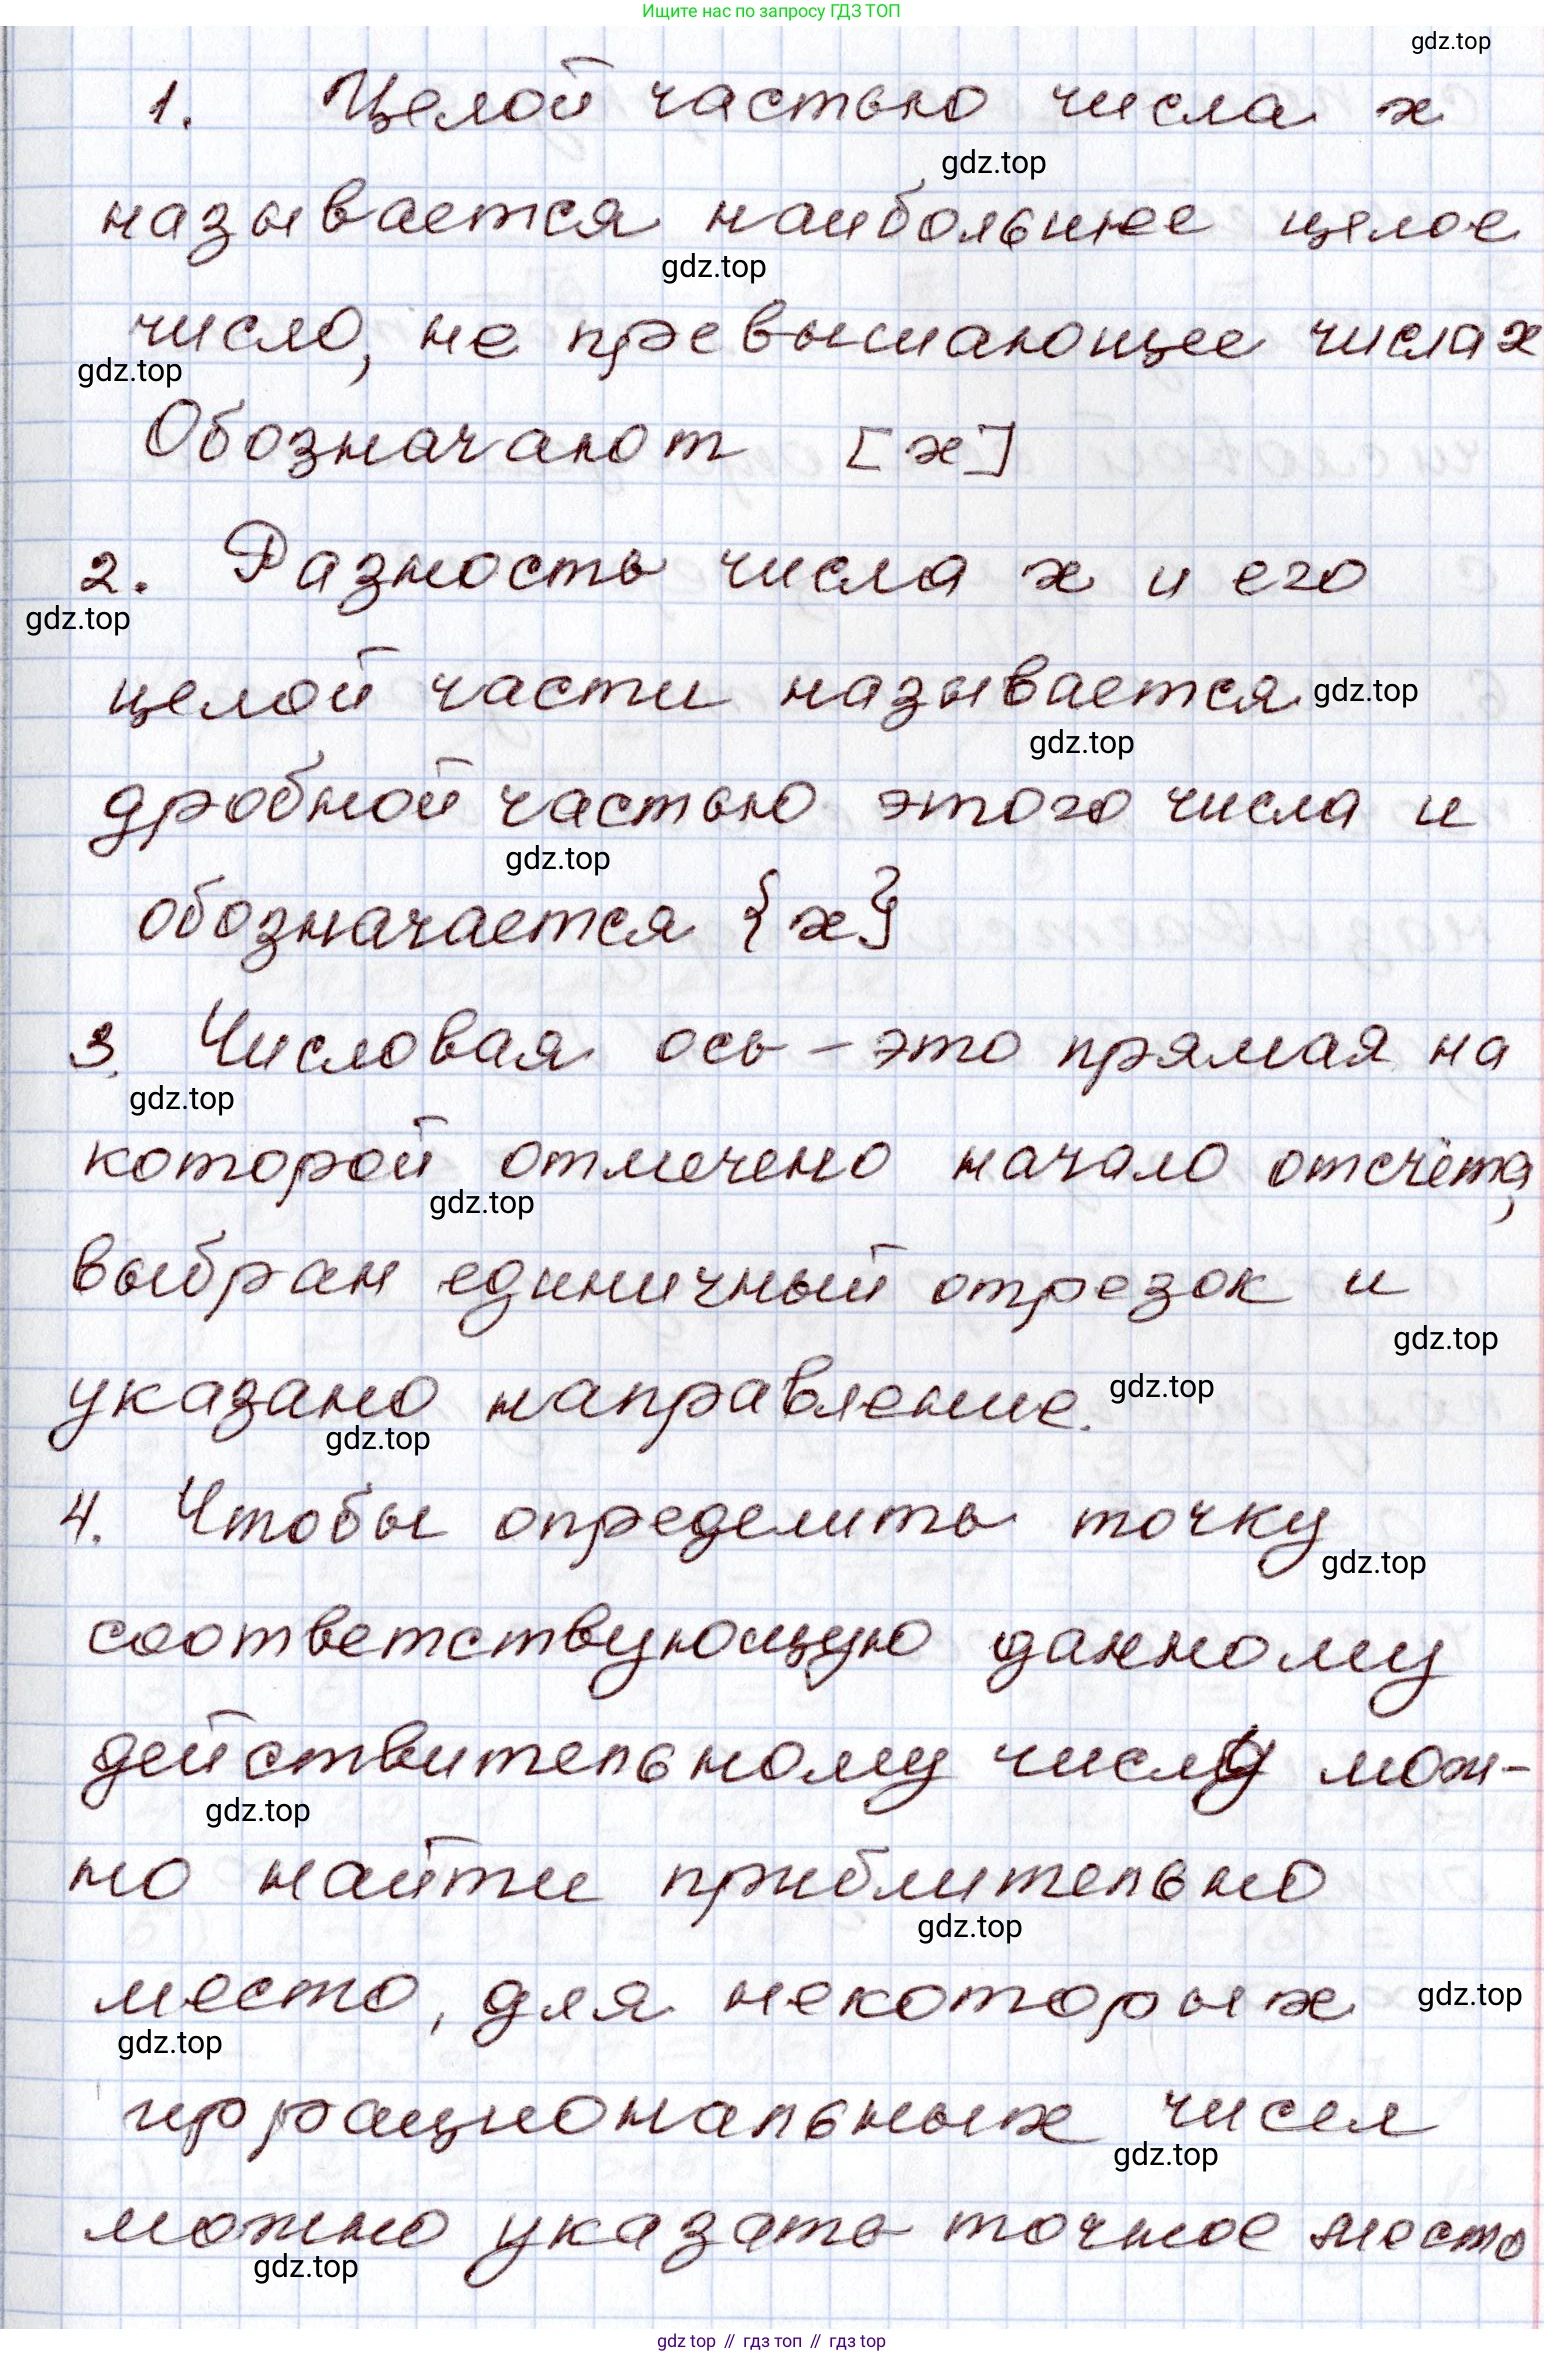 Ищите нас по запросу ГДЗ ТОП
gdz.top
1. Целой частью числа x
gdz.top
называется наибольшее целое
gdz.top
число, не превышающее числа x
gdz.top
Обозначают [x]
2. Разность числа x и его
gdz.top
целой части называется
gdz.top
gdz.top
дробной частью этого числа и
gdz.top
обозначается {x}
3. Числовая ось – это прямая на
gdz.top
которой отмечено начало отсчёта,
gdz.top
выбран единичный отрезок и
gdz.top
указано направление.
gdz.top
gdz.top
4. Чтобы определить точку
gdz.top
соответствующую данному
действительному числу мож-
gdz.top
но найти приблительно
gdz.top
место, для некоторых
gdz.top
gdz.top
иррациональных чисел
gdz.top
можно указать точное место
gdz.top
gdz top // гдз топ // gdz top